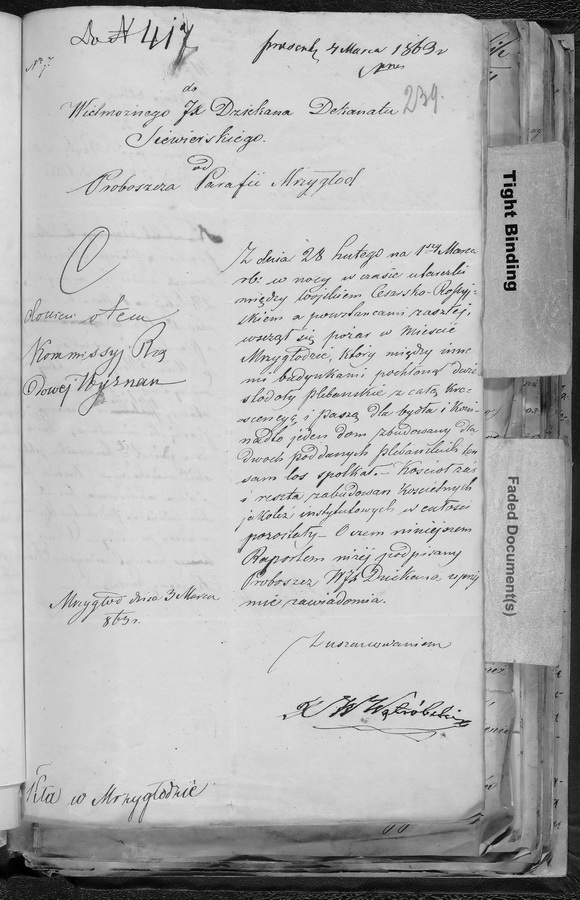 Do N 417
present 4 Marca 1863 r
No 7.
239.
do
Wielmożnego Jx Dziekana Dekanatu
Siewierskiego.
od
Proboszcza Parafii Mrzygłod
Z dnia 28 Lutego na 1szy Marca
rb: w nocy w czasie utarczki
między wojskiem Cesarsko-Rossyj-
skiem a powstańcami zaszłej,
wszczął się pożar w mieście
Mrzygłodzie, który między inne
mi budynkami pochłonął dwie
stodoły plebańskie z całą kre-
scencyą i paszą dla bydła i koni
nadto jeden dom zbudowany dla
dwóch poddanych plebańskich ten
sam los spotkał. – Kościoł zaś
i reszta zabudowań kościelnych
jakoteż instytutowych w całości
pozostały – O czem niniejszem
Raportem niżej podpisany
Proboszcz WJx Dziekana
mie zawiadamia.
otem
Kommissyi Rzą
dowej Wyznan
Mrzygłod dnia 3 Marca
863 r.
Z uszanowaniem
X W Wątróbski
w Mrzygłodzie
Tight Binding
Faded Document(s)